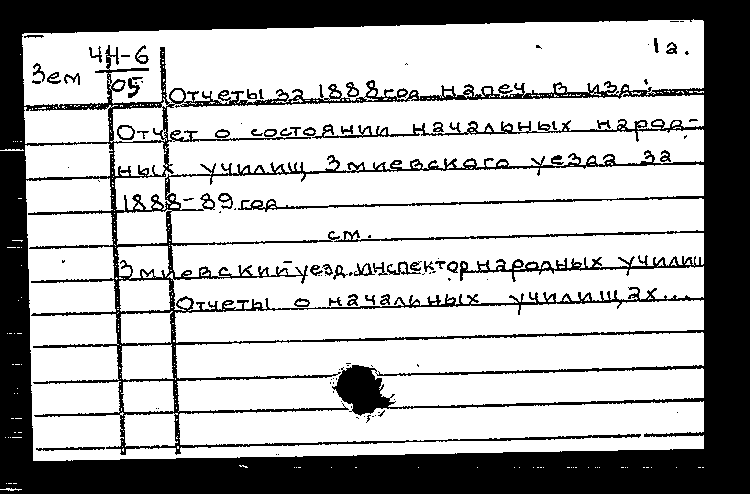 1а.
Зем 4Н-6
05
Отчеты за 1888 год напеч. в изд.:
Отчет о состоянии начальных народ-
ных училищ Змиевского уезда за
1888-89 год.
см.
Змиевский уезд. инспектор народных училищ
Отчеты о начальных училищах...